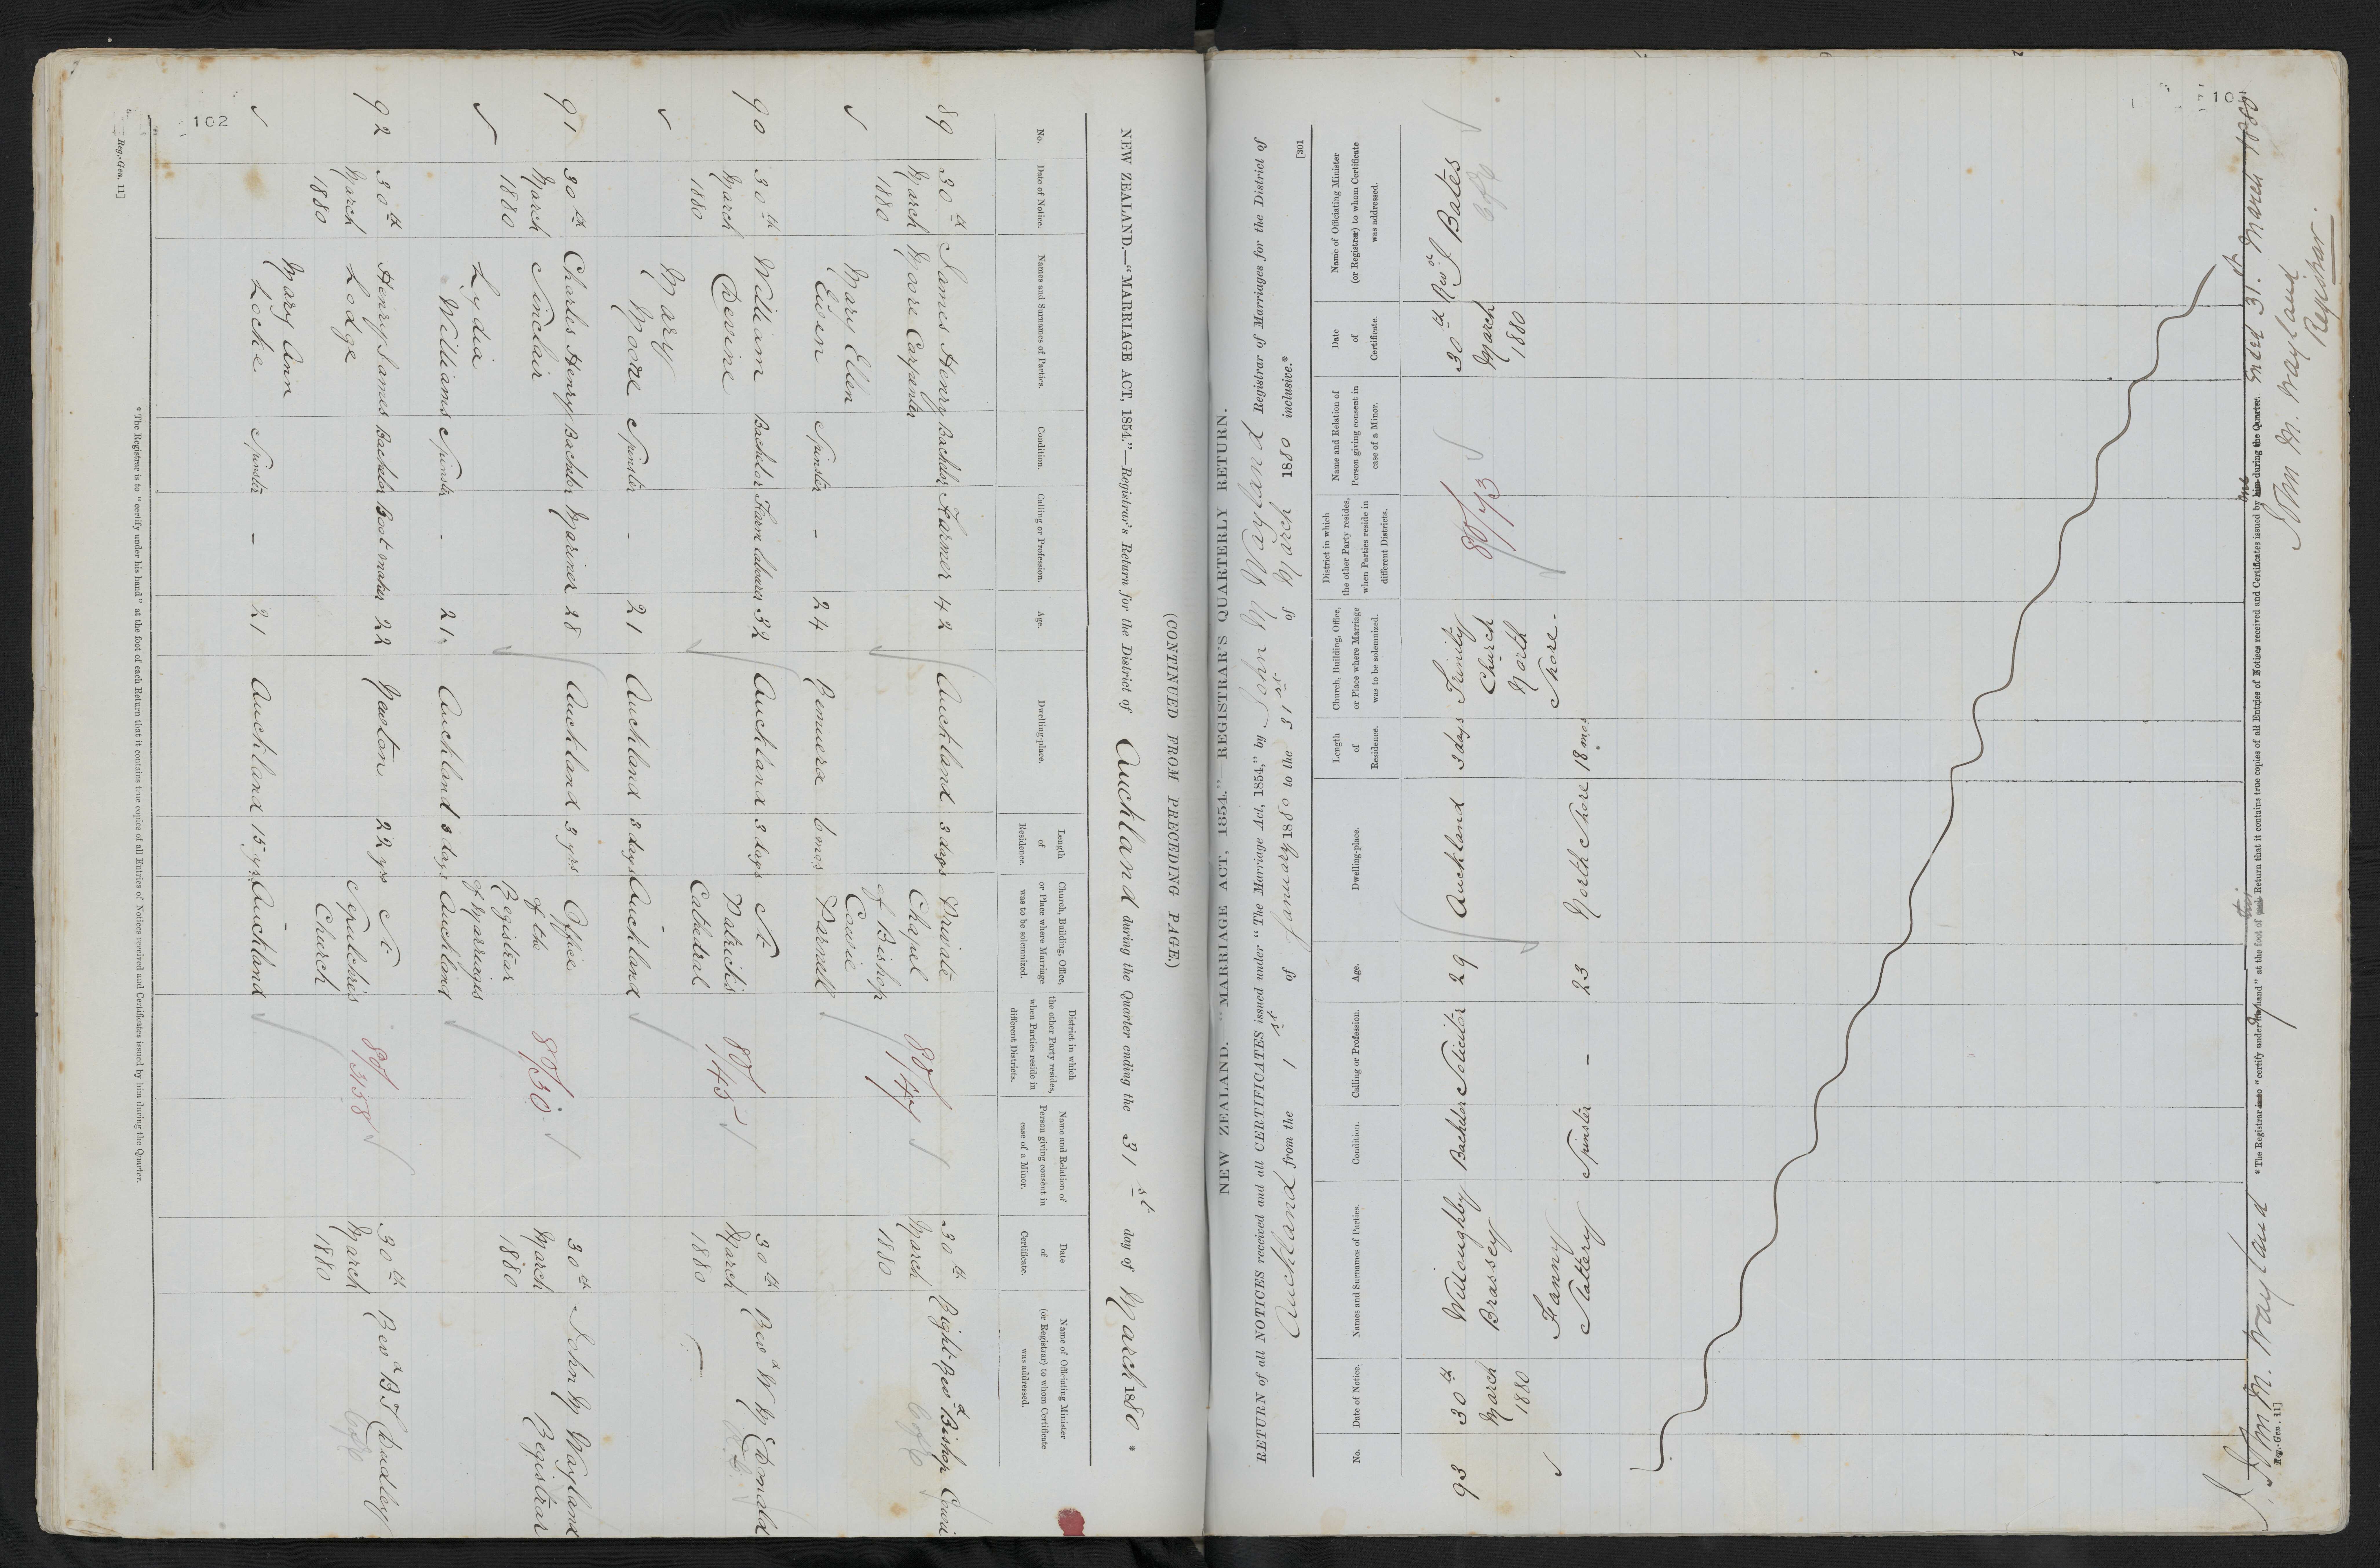 (CONTINUED FROM PRECEDING PAGE.)
NEW ZEALAND.—"MARRIAGE ACT, 1854."—Registrar's Return for the District of Auckland during the Quarter ending the 31st day of March 1880 *
No. Date of Notice. Names and Surnames of Parties. Condition. Calling or Profession. Age. Dwelling-place. Length of Residence. Church, Building, Office, or Place where Marriage was to be solemnized. District in which the other Party resides, when Parties reside in different Districts. Name and Relation of Person giving consent in case of a Minor. Date of Certificate. Name of Officiating Minister (or Registrar) to whom Certificate was addressed.
89 30th James Henry Bachelor Farmer 42 Auckland 3 days Private 30th Right Revd Bishop Cowie
March Moore Carpenter Chapel 80/ March C of E
1880 of Bishop 1880
Mary Ellen Cowie
Eusen Spinster - 24 Remuera 6 mos Parnell
90 30th William Bachelor Farm labourer 32 Auckland 3 days St 30th Revd W McDonald
March Devine Patrick's 80/ March R.C.
1880 Cathedral 1880
Mary
Moore Spinster - 21 Auckland 3 days Auckland
91 30th Charles Henry Bachelor Mariner 28 Auckland 3 yrs Office 30th John M Wayland
March Sinclair of the 80/30 March Registrar
1880 Registrar 1880
Lydia of Marriages
Williams Spinster - 21 Auckland 3 days Auckland
92 30th Henry James Bachelor Bootmaker 22 Newton 22 yrs St 30th Revd B T Dudley
March Lodge Sepulchres 80/ March C of E
1880 Church 1880
Mary Ann
Locke Spinster - 21 Auckland 15 yrs Auckland
102
* The Registrar is to "certify under his hand" at the foot of each Return that it contains true copies of all Entries of Notices received and Certificates issued by him during the Quarter.
Reg.-Gen. 11]
[301
NEW ZEALAND.—"MARRIAGE ACT, 1854."—REGISTRAR'S QUARTERLY RETURN.
RETURN of all NOTICES received and all CERTIFICATES issued under "The Marriage Act, 1854," by John M Wayland Registrar of Marriages for the District of
Auckland from the 1st of January 1880 to the 31st of March 1880 inclusive.*
No. Date of Notice. Names and Surnames of Parties. Condition. Calling or Profession. Age. Dwelling-place. Length of Residence. Church, Building, Office, or Place where Marriage was to be solemnized. District in which the other Party resides, when Parties reside in different Districts. Name and Relation of Person giving consent in case of a Minor. Date of Certificate. Name of Officiating Minister (or Registrar) to whom Certificate was addressed.
93 30th Willoughby Bachelor Solicitor 29 Auckland 3 days Trinity 80/ 30th Revd J Bates
March Brassey Church March C of E
1880 North 1880
Fanny Shore.
Slattery Spinster - 23 North Shore 18 mos
I, John M. Wayland
* The Registrar is to "certify under his my hand" at the foot of each this Return that it contains true copies of all Entries of Notices received and Certificates issued by him me during the Quarter. Ended 31st March 1880
John M. Wayland
Registrar.
Reg.-Gen. 11]